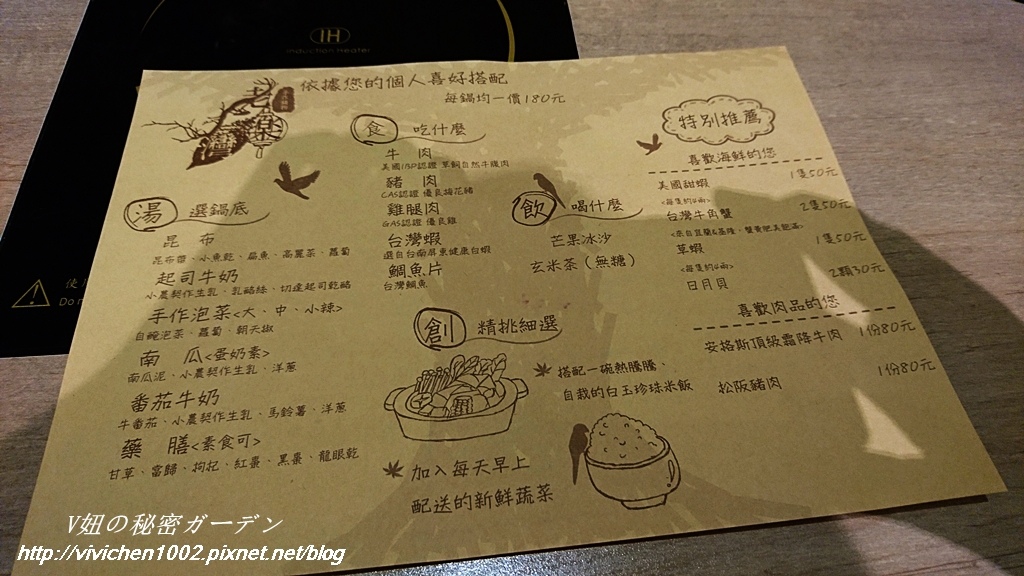 IH
Induction Heater
依據您的個人喜好搭配
每鍋均一價180元
湯 選鍋底
昆 布
昆布醬、小魚乾、扁魚、高麗菜、蘿蔔
起司牛奶
小農契作生乳、乳酪絲、切達起司乾酪
手作泡菜<大、中、小辣>
自醃泡菜、蘿蔔、朝天椒
南 瓜<蛋奶素>
南瓜泥、小農契作生乳、洋蔥
番茄牛奶
牛番茄、小農契作生乳、馬鈴薯、洋蔥
藥 膳<素食可>
甘草、當歸、枸杞、紅棗、黑棗、龍眼乾
食 吃什麼
牛 肉
豬 肉
CAS認證 優良梅花豬
雞腿肉
GAS認證 優良雞
台灣蝦
選自台南屏東健康白蝦
鯛魚片
台灣鯛魚
飲 喝什麼
芒果冰沙
玄米茶(無糖)
創 精挑細選
搭配一碗熱騰騰、
自栽的白玉珍珠米飯
加入每天早上
配送的新鮮蔬菜
特別推薦
喜歡海鮮的您
美國甜蝦 1隻50元
台灣牛角蟹 2隻50元
草蝦 1隻50元
日月貝 2顆50元
喜歡肉品的您
安格斯頂級霜降牛肉 1份80元
松阪豬肉 1份80元
V妞の秘密ガーデン
http://vivichen1002.pixnet.net/blog